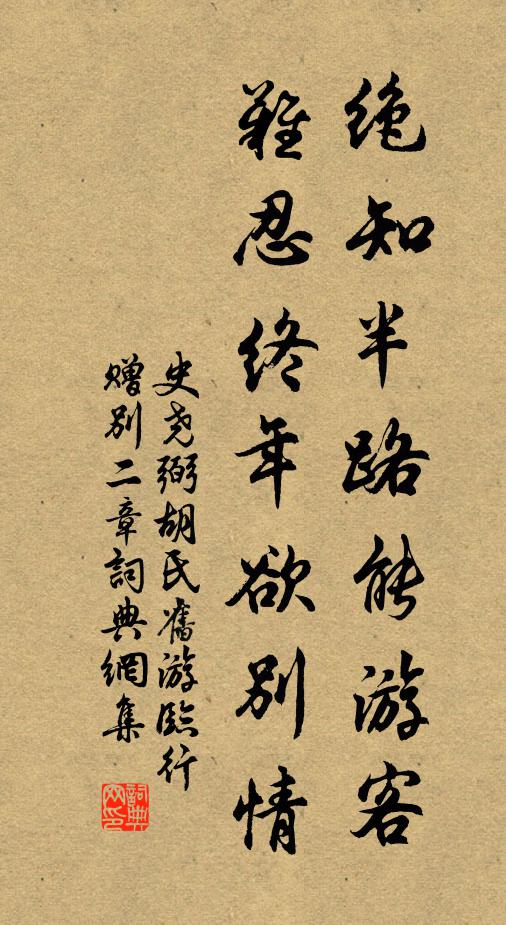 绝知半路能游客
難忍终年欲别情
史尧弼胡氏舊游臨行
赠别二章詞典網集
詞典
网印